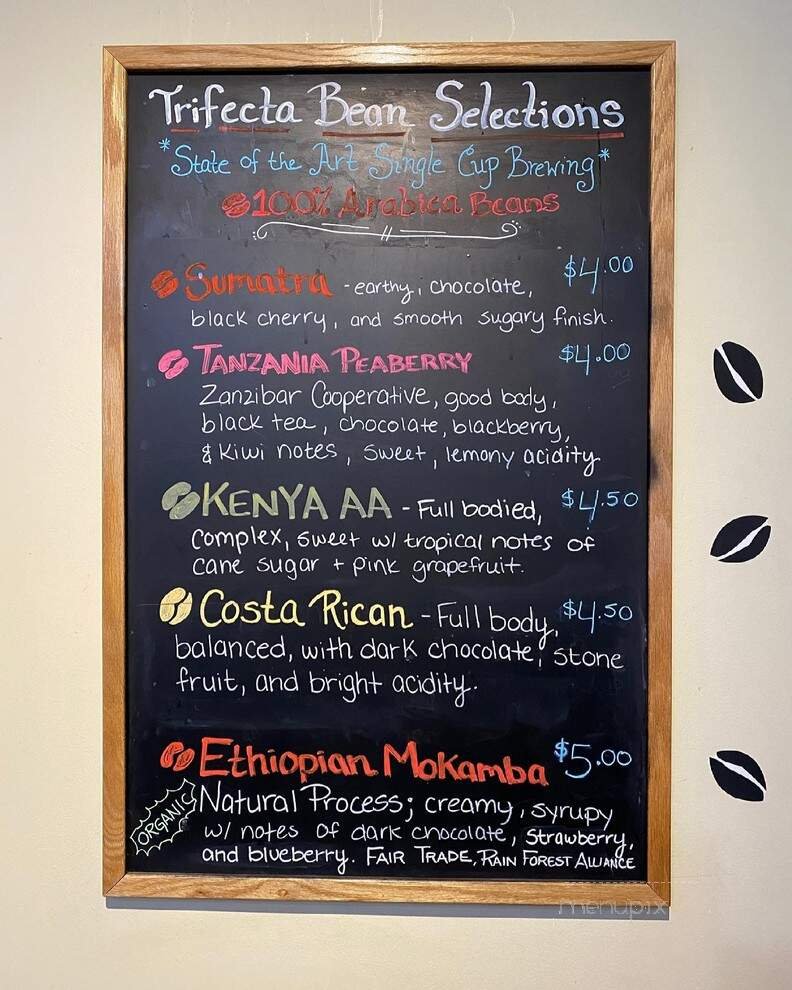 Trifecta Bean Selections
*State of the Art Single Cup Brewing*
100% Arabica Beans
Sumatra - earthy, chocolate, $4.00
black cherry, and smooth sugary finish.
TANZANIA PEABERRY $4.00
Zanzibar Cooperative, good body,
black tea, chocolate, blackberry,
& Kiwi notes, sweet, lemony acidity
KENYA AA - Full bodied, $4.50
complex, sweet w/ tropical notes of
cane sugar + pink grapefruit.
Costa Rican - Full body, $4.50
balanced, with dark chocolate, stone
fruit, and bright acidity.
Ethiopian Mokamba $5.00
ORGANIC
Natural Process; creamy, syrupy
w/ notes of dark chocolate, strawberry,
and blueberry. FAIR TRADE, RAIN FOREST ALLIANCE
menupix